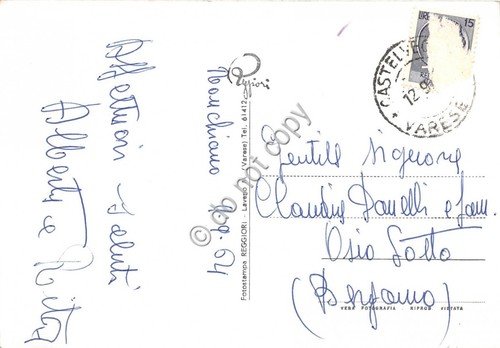 Affettuosi saluti
Alberto e Rita
Reggiori
1.9.64
Fotostampa REGGIORI - Laveno (Varese) Tel. 61412
LIRE 15
CASTELVE
12.9
VARESE
Gentile Signora
Claudia e fam.
Osio Sotto
(Bergamo)
VERA FOTOGRAFIA RIPROD. VIETATA
do not copy